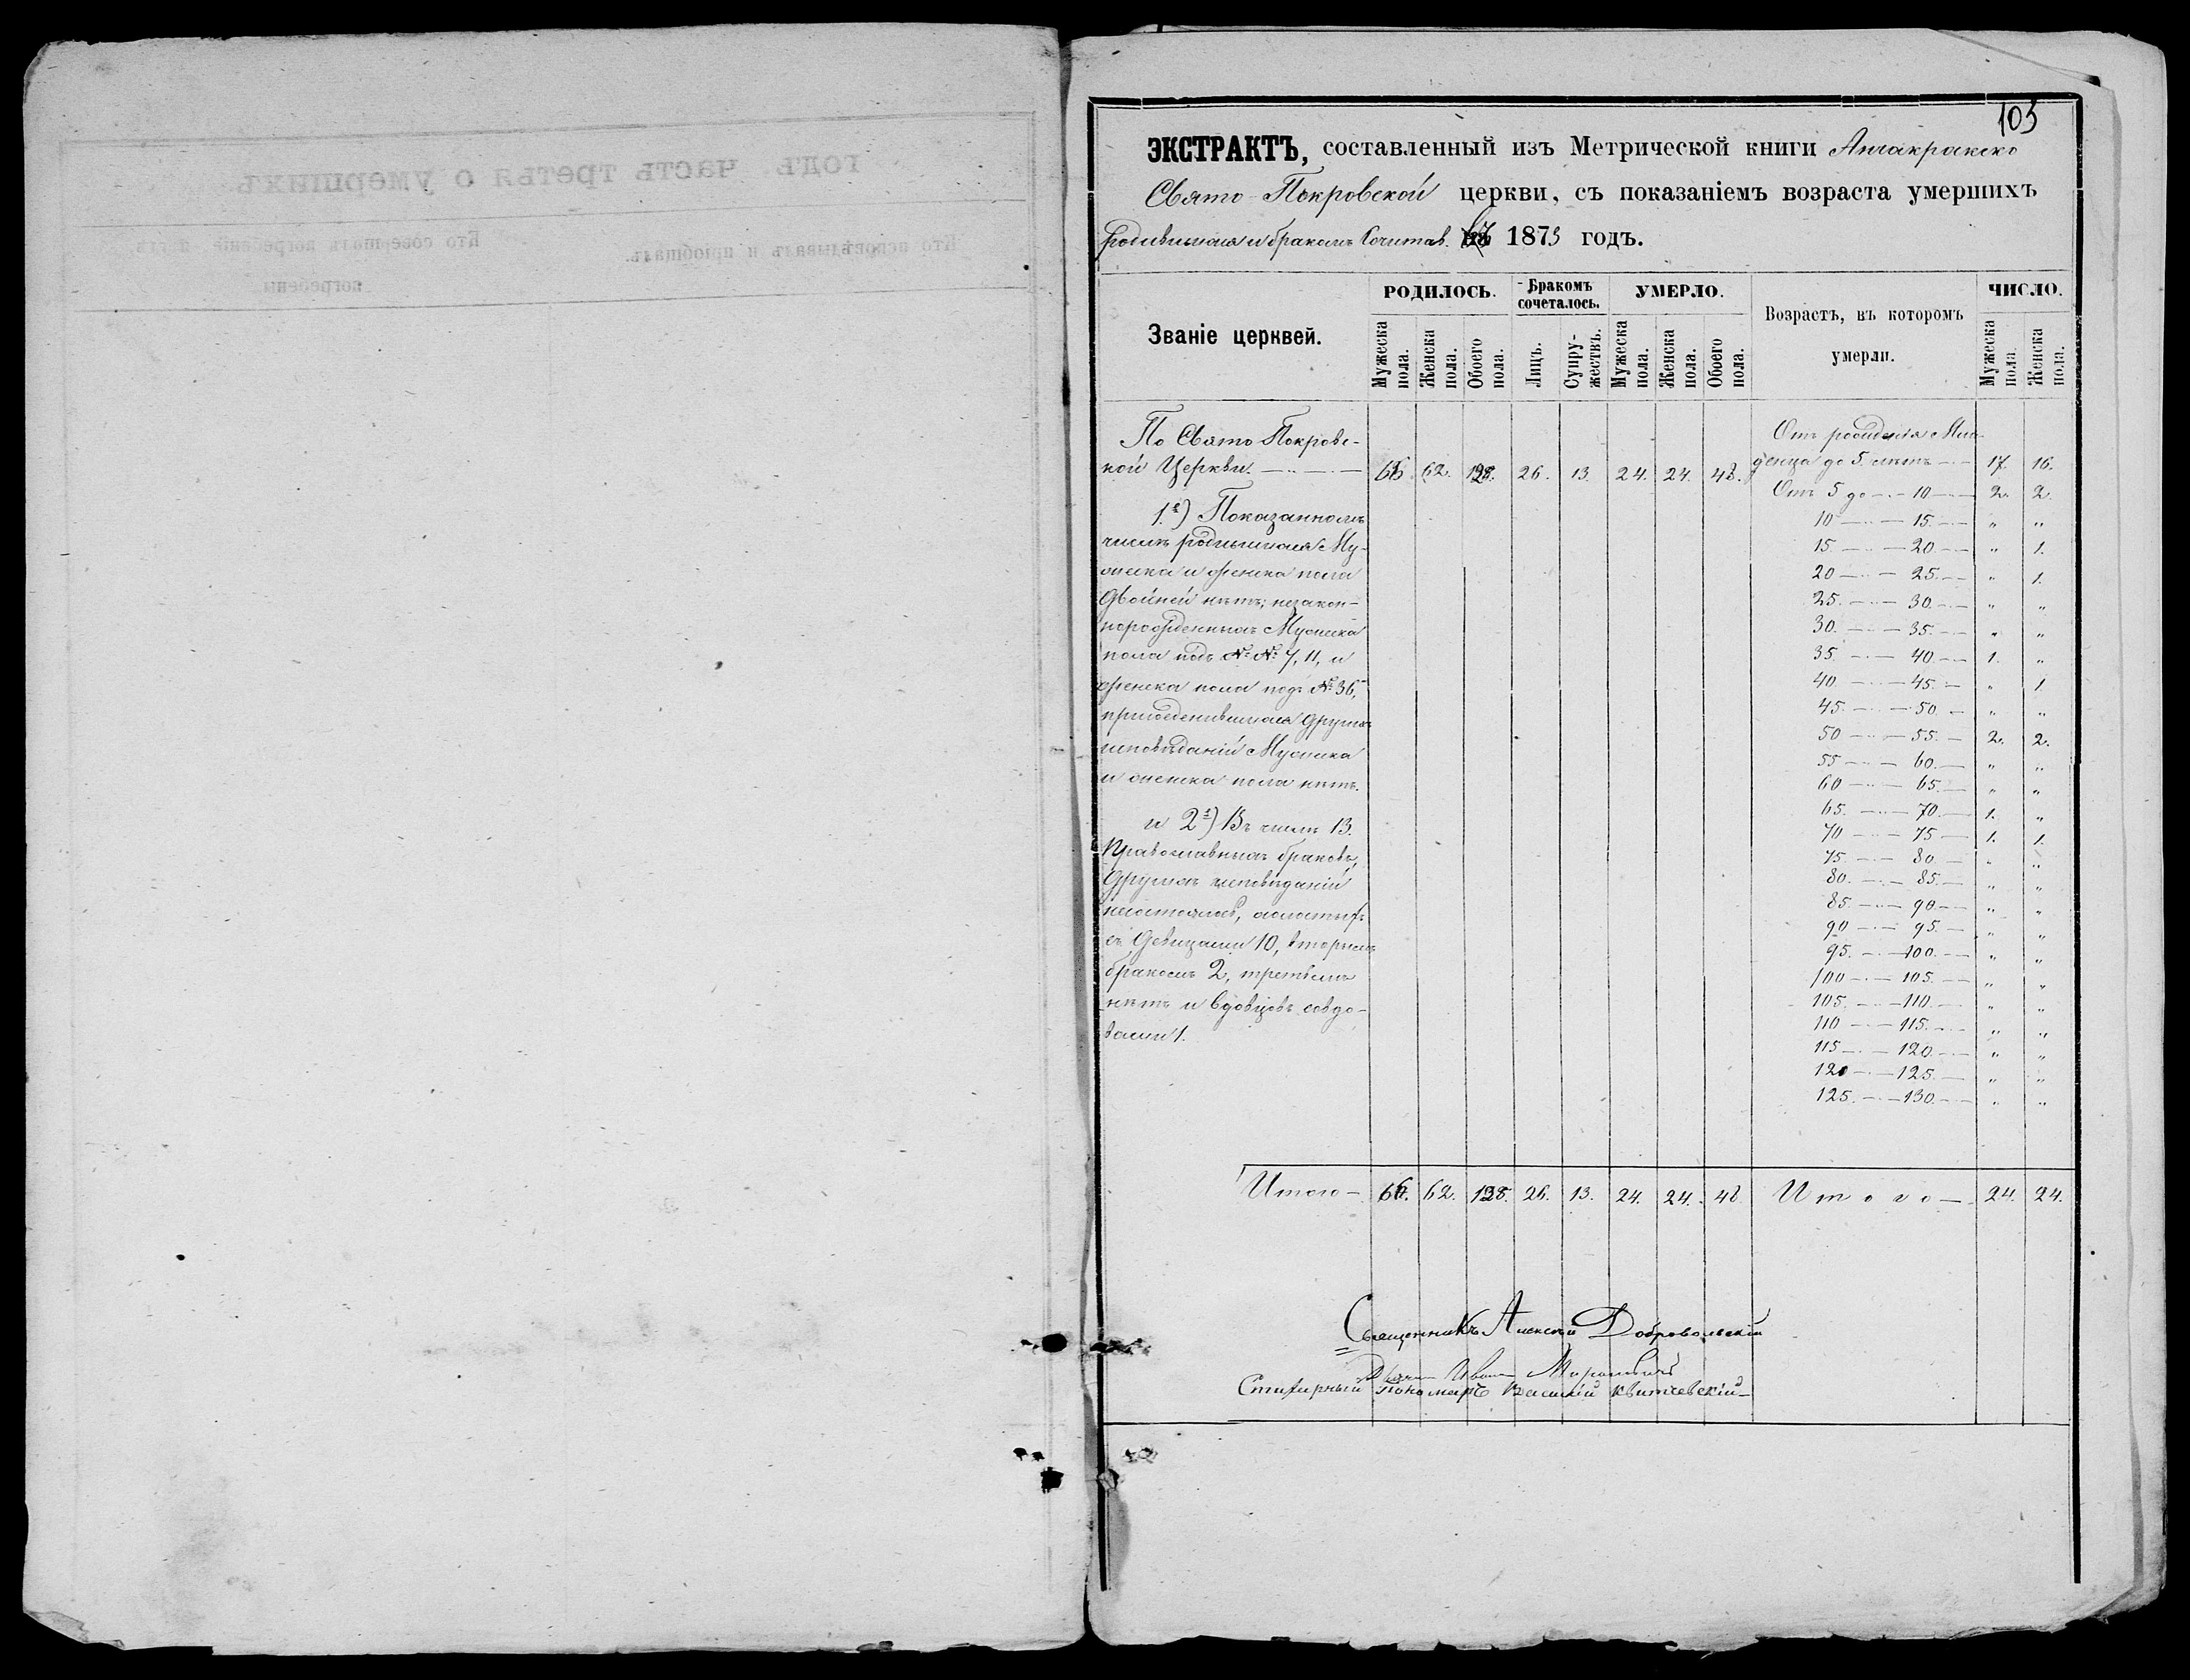 105
ЭКСТРАКТЪ, составленный изъ Метрической книги Анчакракско
Свято-Покровской церкви, съ показаніемъ возраста умершихъ
родившихся и бракомъ сочетав. въ 1873 годъ.
Званіе церквей.
РОДИЛОСЬ.
Бракомъ сочеталось.
УМЕРЛО.
Возрастъ, въ которомъ умерли.
ЧИСЛО.
Мужеска пола.
Женска пола.
Обоего пола.
Лицъ.
Супружествъ.
Мужеска пола.
Женска пола.
Обоего пола.
Мужеска пола.
Женска пола.
По Свято-Покровс-
кой Церкви. 66. 62. 128. 26. 13. 24. 24. 48.
1.е) Показанномъ
числѣ родившихся Му-
жеска и женска пола
двойней нѣтъ; незакон-
норожденныхъ Мужеска
пола подъ №№ 7, 11, и
женска пола подъ № 36,
присоединившихся другихъ
исповѣданій Мужеска
и женска пола нѣтъ.
и 2е) Въ числѣ 13.
Православныхъ браковъ,
другихъ исповѣданій
несостоялось, холостыхъ
съ девицами 10, вторымъ
бракомъ 2, третьимъ
нѣтъ и вдовцовъ совдо-
вами 1.
Отъ рожденія Мла-
денца до 5. лѣтъ 17. 16.
Отъ 5 до 10 2. 2.
10 — 15. " "
15. — 20. " 1.
20 — 25. " 1.
25. — 30. " "
30. — 35. " "
35. — 40. 1. "
40. — 45. " 1.
45. — 50. " "
50 — 55. 2. 2.
55 — 60. " "
60 — 65. " "
65. — 70. 1. "
70 — 75 1. 1.
75. — 80. " "
80. — 85. " "
85. — 90 " "
90 — 95. " "
95. — 100. " "
100 — 105. " "
105. — 110. " "
110 — 115. " "
115 — 120. " "
120 — 125. " "
125. — 130. " "
Итого — 66. 62. 128. 26. 13. 24. 24. 48 Итого — 24. 24.
Священникъ Алексѣй Добровольскій
Иванъ
Стихарный Пономарь Василій Квитчевскій
годъ часть третья о умершихъ
Кто исповѣдывалъ и пріобщалъ.
Кто совершалъ погребеніе
погребены